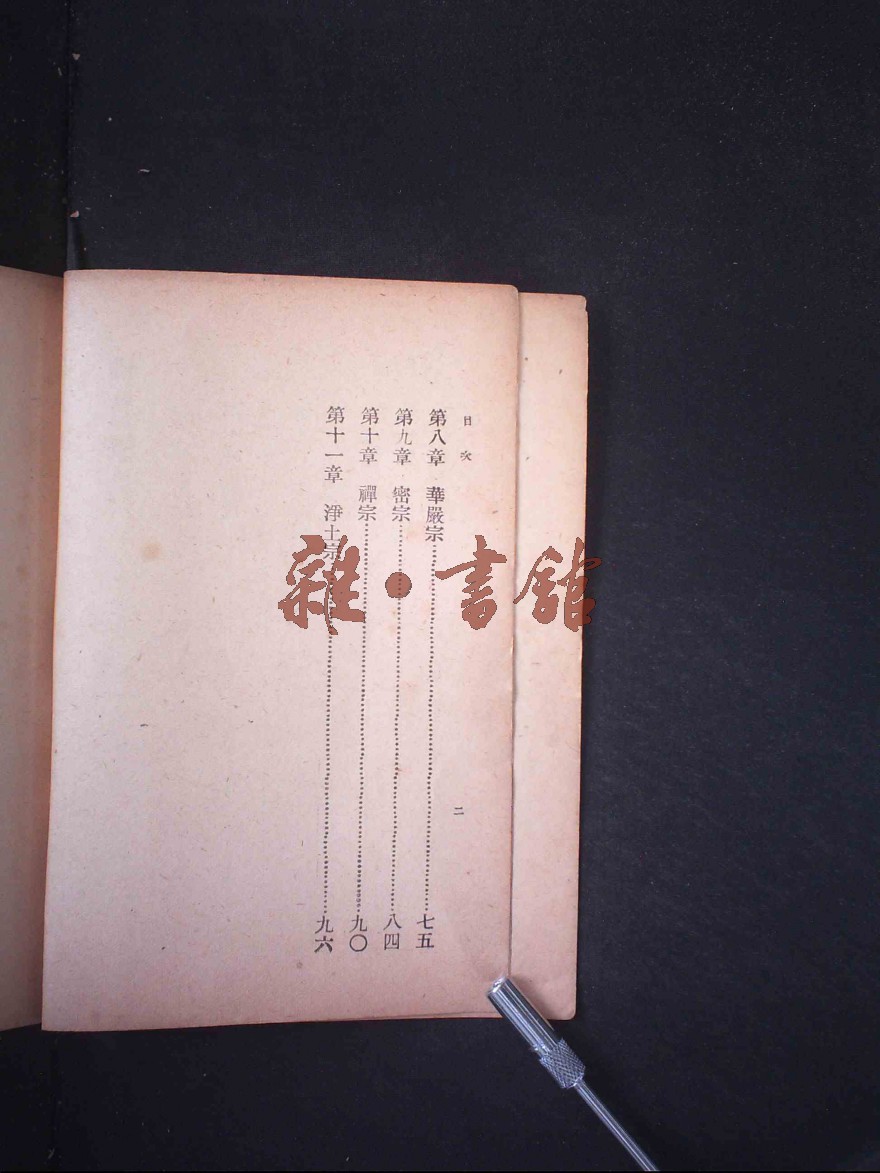 目次
第八章 華嚴宗……七五
第九章 密宗……八四
第十章 禪宗……九〇
第十一章 淨土宗……九六
二
雜·書館